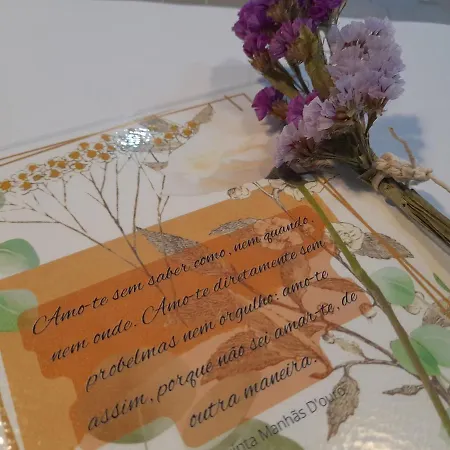 Amo-te sem saber como, nem quando,
nem onde. Amo-te diretamente sem
probelmas nem orgulho: amo-te
assim, porque não sei amar-te, de
outra maneira.
Manhãs D'ouro